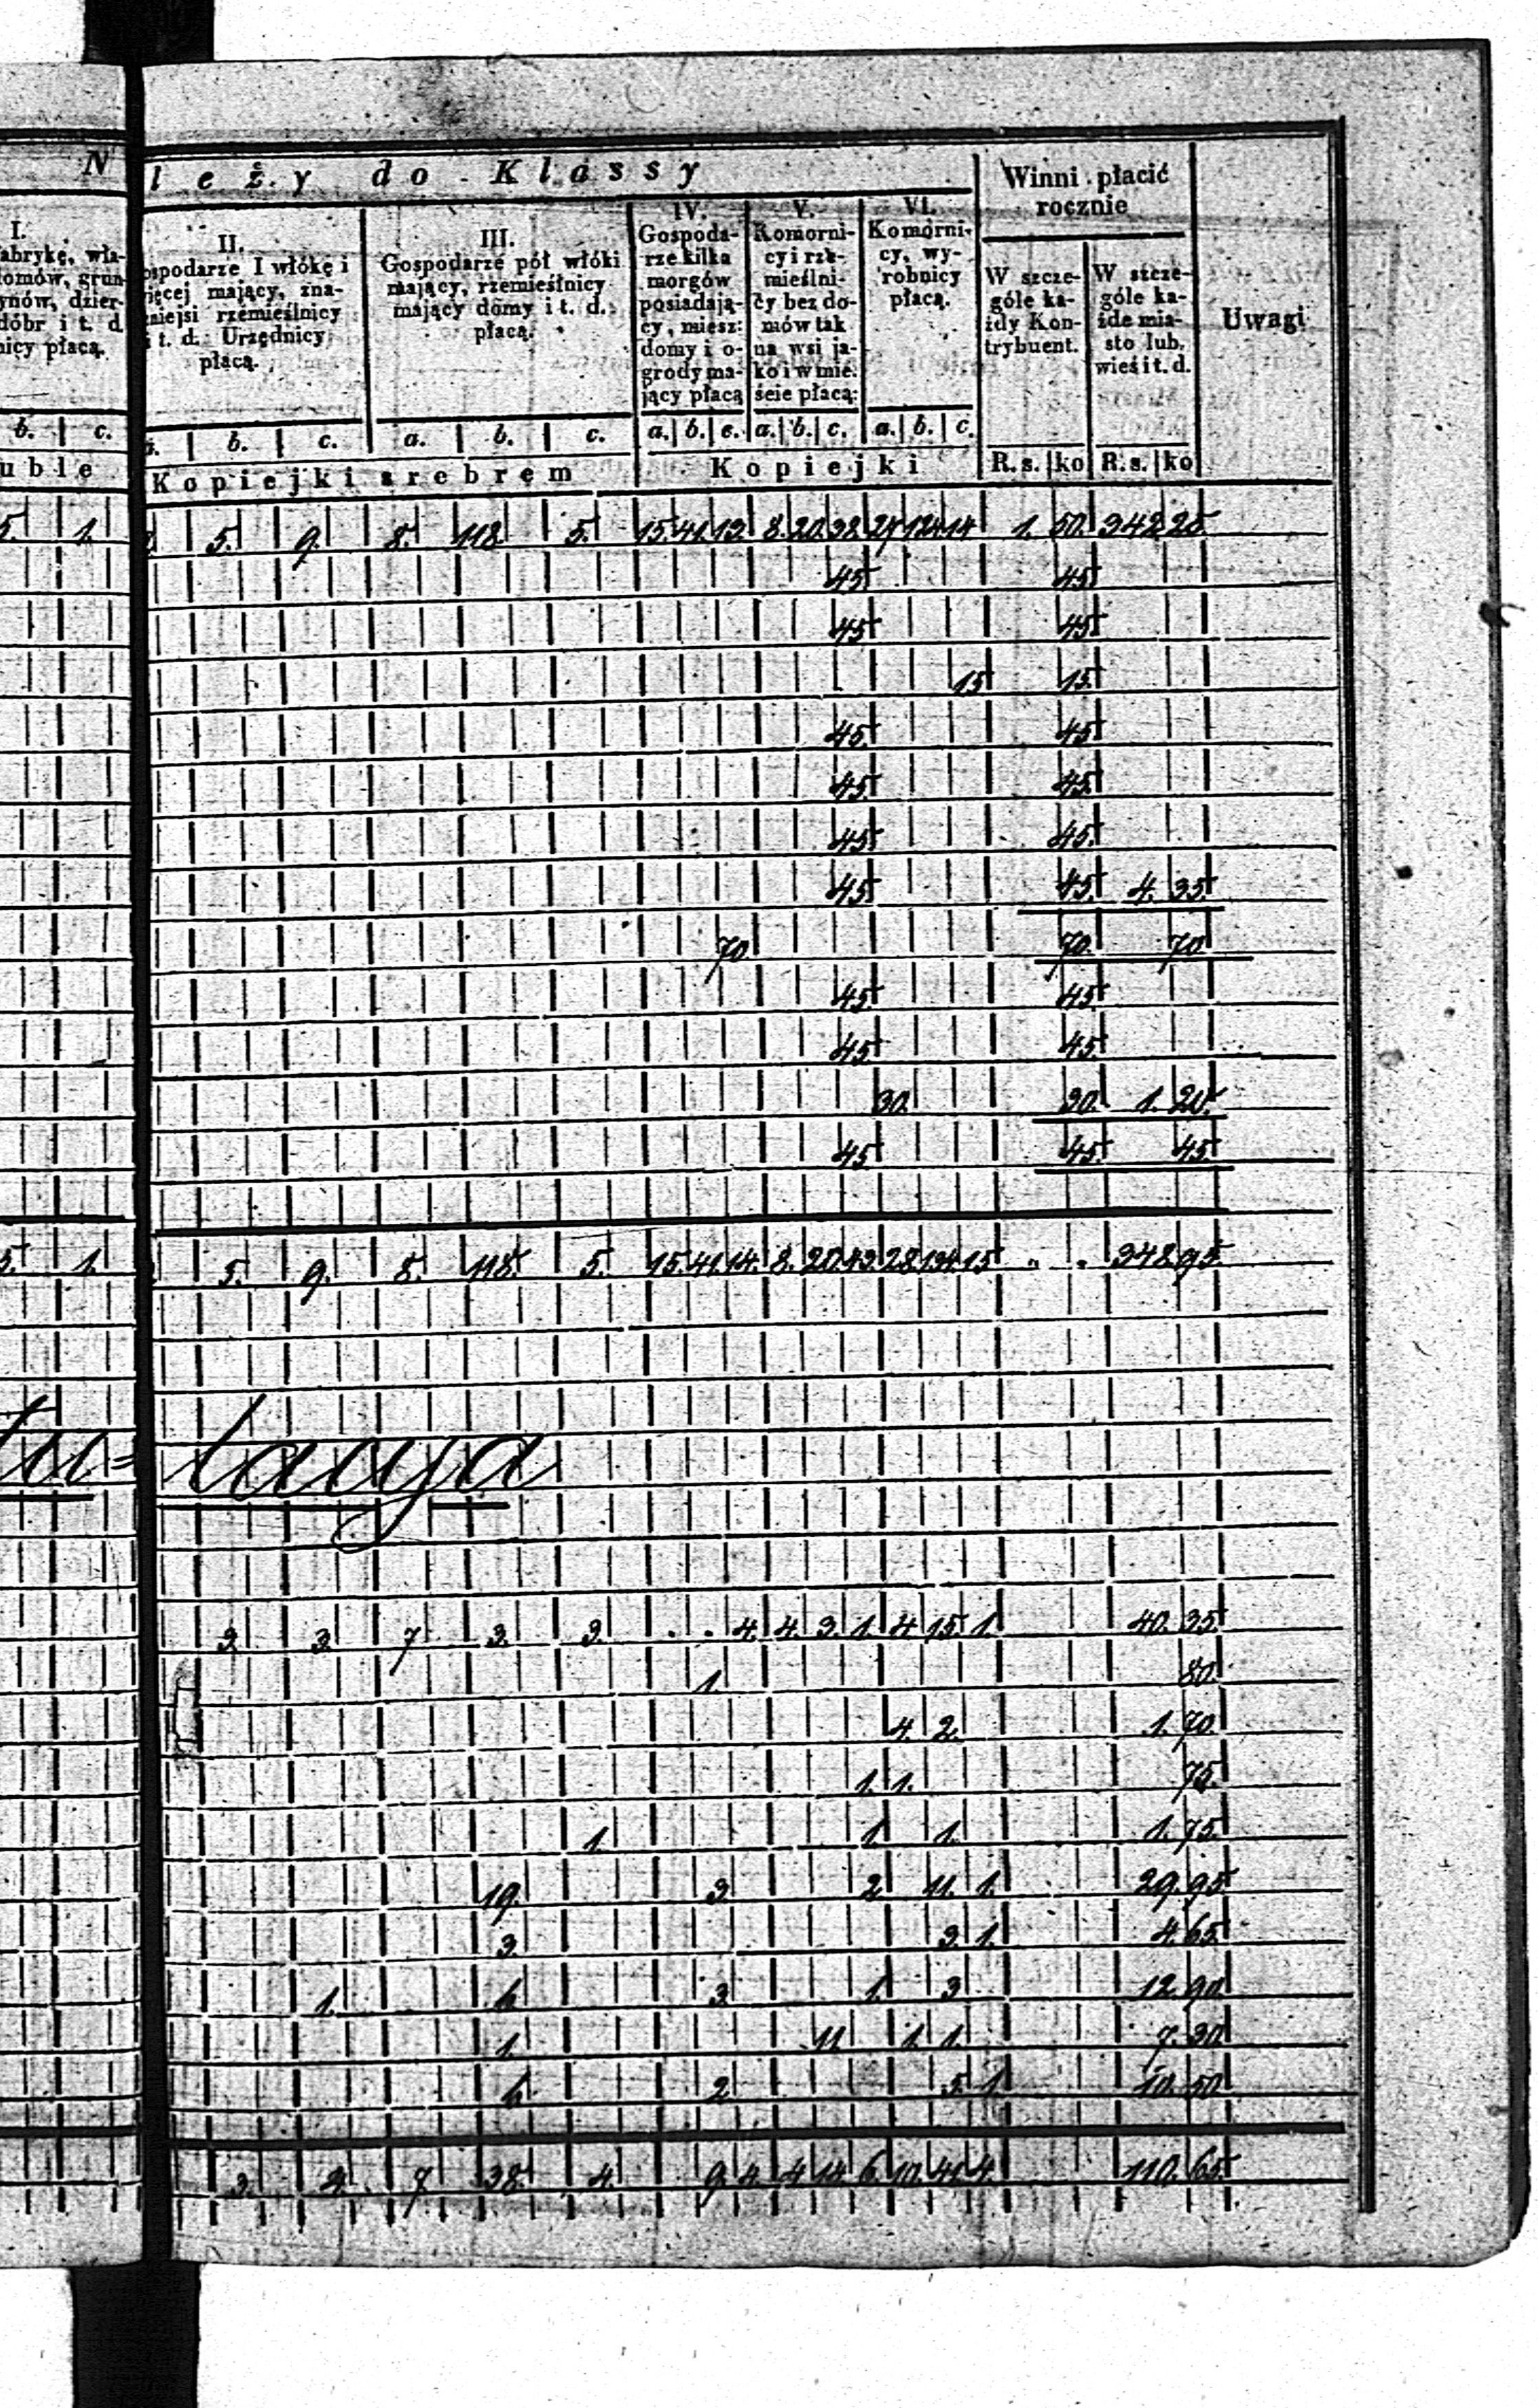 N leży do Klassy
Winni płacić
rocznie
I.
abrykę, wła-
omów, grun-
ynów, dzier-
dóbr i t. d
nicy płacą.
II.
ospodarze I włókę i
ięcej mający, zna-
niejsi rzemieślnicy
i t. d. Urzędnicy
płacą.
III.
Gospodarze pół włóki
mający, rzemieślnicy
mający domy i t. d.
płacą.
IV.
Gospoda-
rze kilka
morgów
posiadają-
cy, miesz:
domy i o-
grody ma-
jący płacą
V.
Komorni-
cy i rze-
mieślni-
cy bez do-
mów tak
na wsi ja-
ko i w mie:
ście płacą:
VI.
Komorni-
cy, wy-
robnicy
płacą.
W szcze-
góle ka-
żdy Kon-
trybuent.
W szcze-
góle ka-
żde mia-
sto lub
wieś i t. d.
Uwagi
b. c. b. c. a. b. c. a. b. c. a. b. c. a. b. c.
uble Kopiejki srebrem Kopiejki R. s. ko R. s. ko
5. 1. 5. 9. 8. 118 5. 15. 41. 13. 8. 20. 38. 1. 50. 342 25
45 45
45 45
15 15
45 45
45 45
45 45
45 45 4. 35
70 70 70
45 45
45 45
30 30 1. 20
45 45 45
5. 1. 5. 9. 8. 118. 5. 15. 41. 14. 8. 20. 43. 28. 134. 15 . . 348. 95
tu=lacya
3. 3. 7 3. 3. . . 4. 4. 3. 1. 4 15. 1. 40. 35
1. 80.
4. 2. 1. 70
1. 1. 75
1. 1. 1. 1. 75
19. 3 2 11. 1. 29. 95
3. 3. 1. 4. 65
1. 6. 3. 1. 3 12. 90
1. 11 1. 1. 7. 30
6. 2 5. 1 10. 50
3. 4. 7. 38. 4. 9. 4. 4. 14. 6. 10. 41. 4. 110. 65